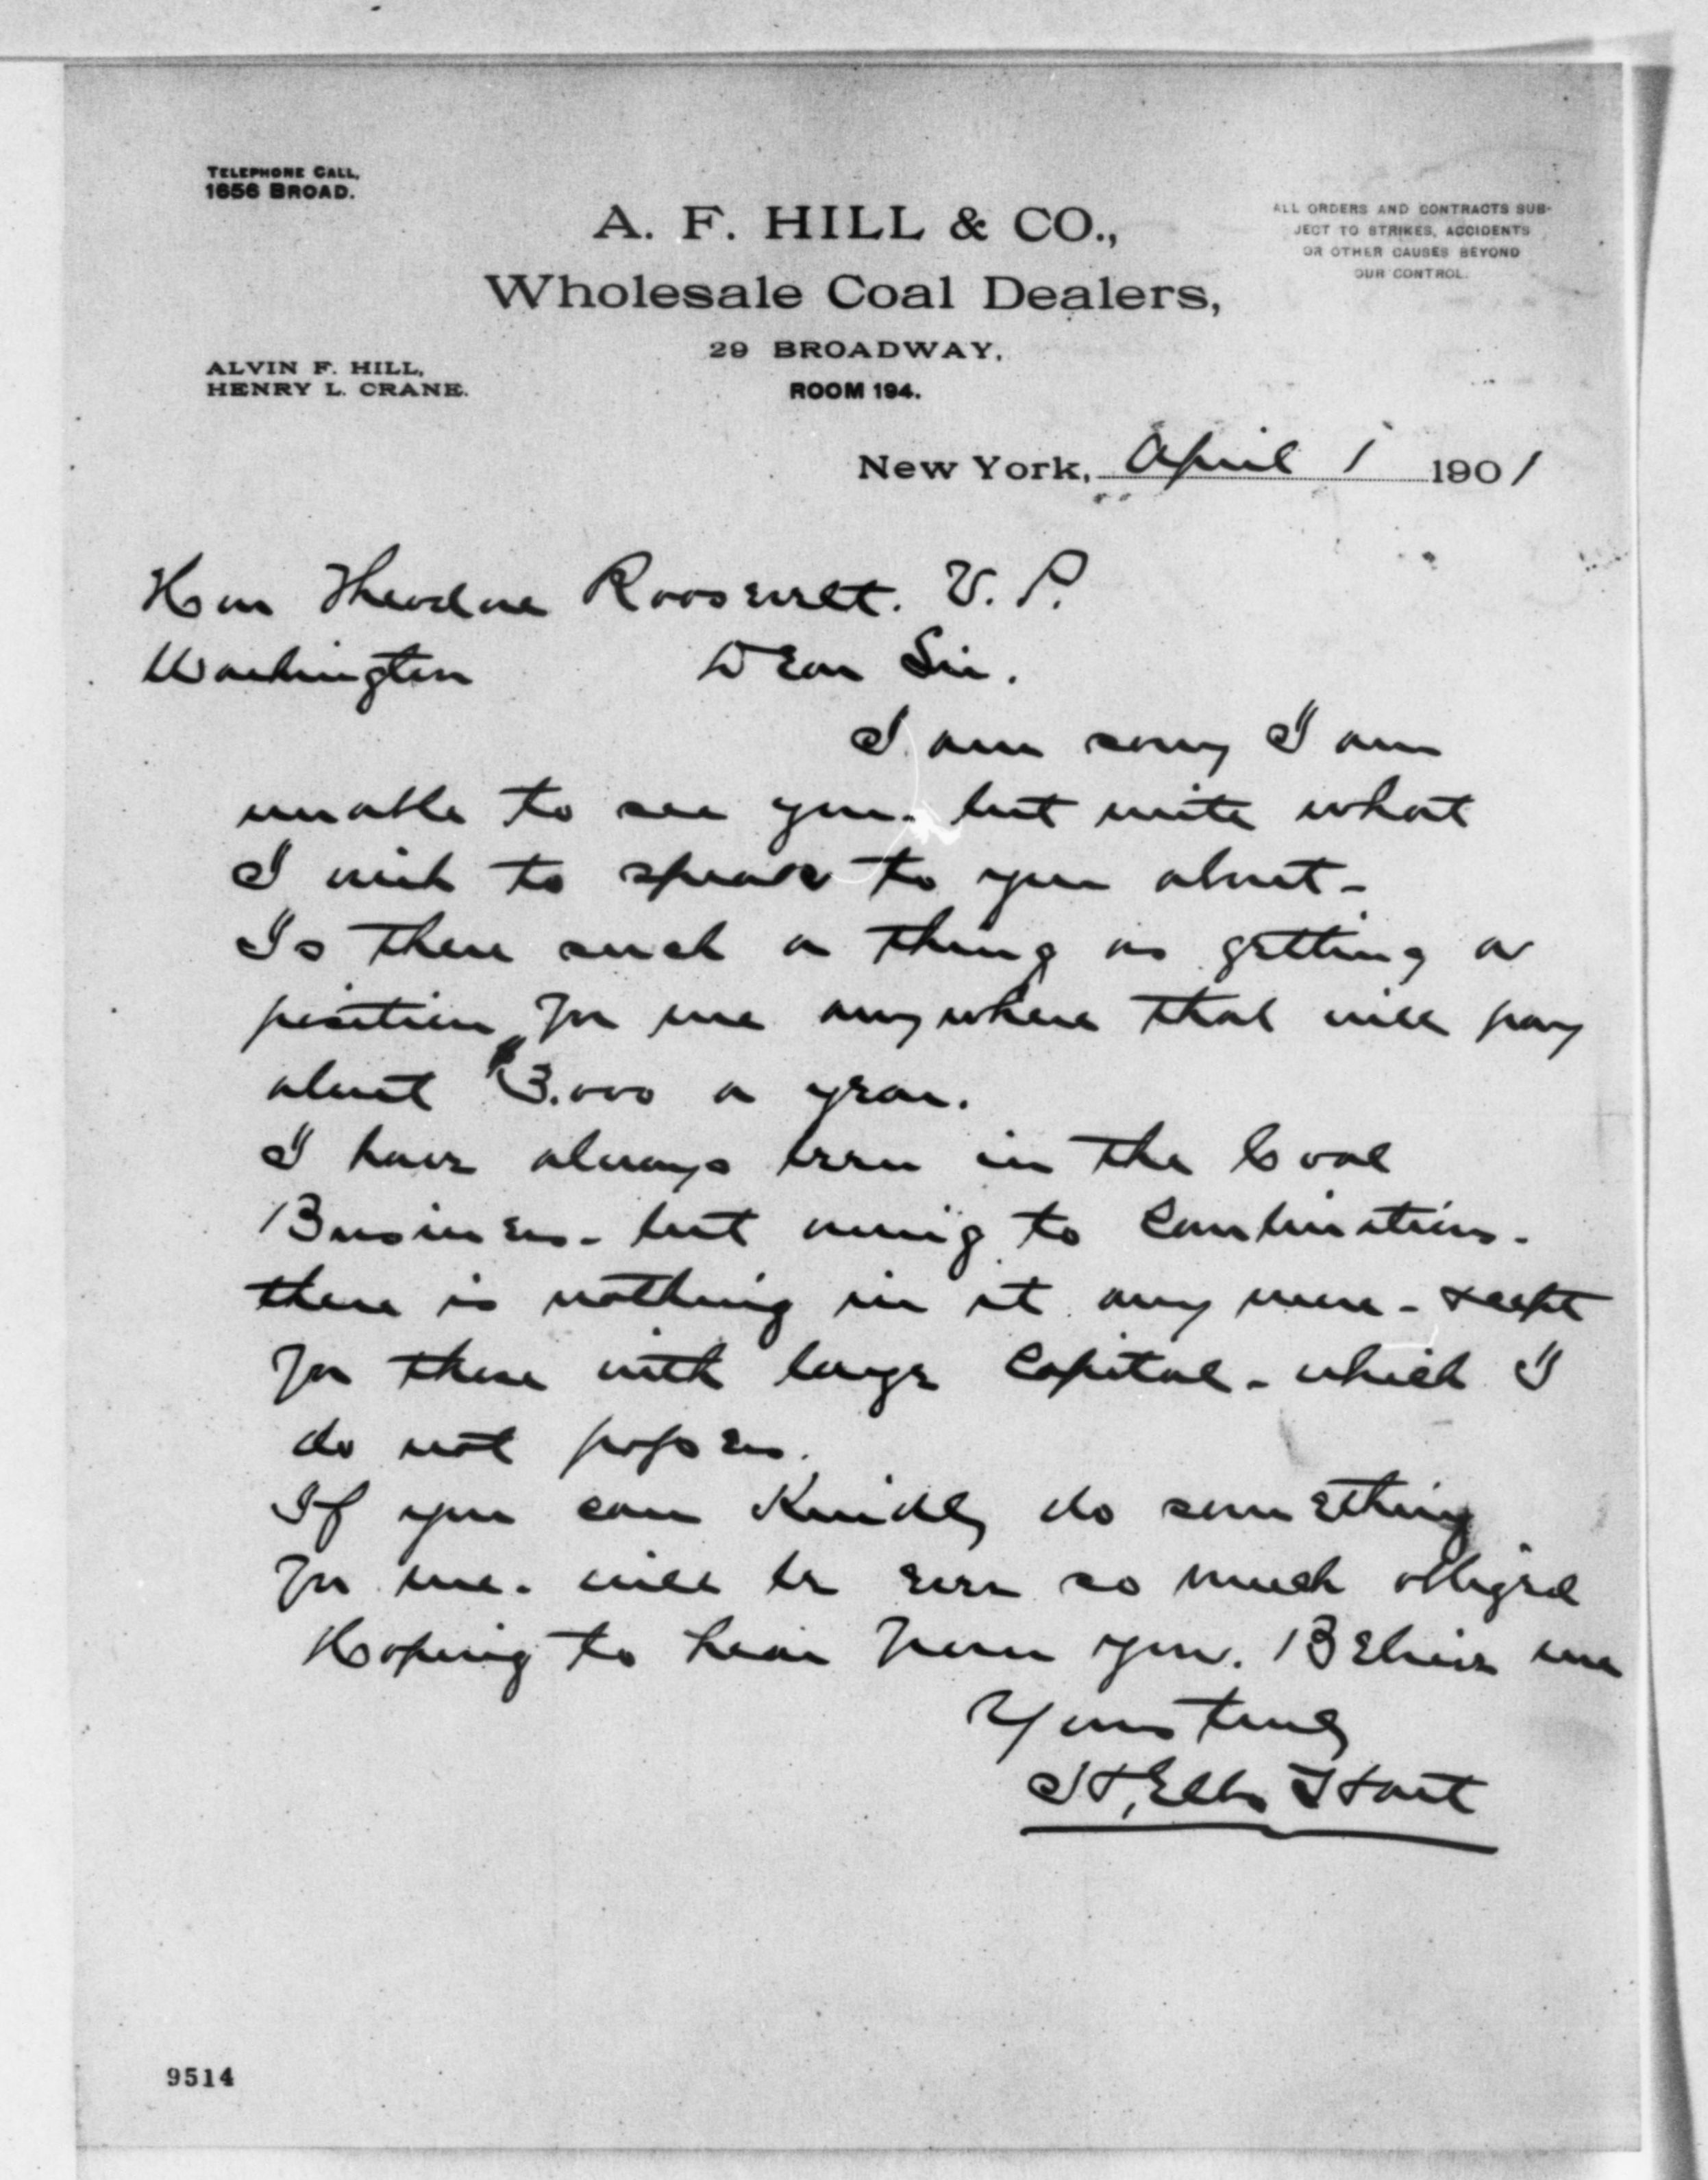 TELEPHONE CALL,
1656 BROAD.
A. F. HILL & CO.,
Wholesale Coal Dealers,
29 BROADWAY,
ROOM 194.
ALL ORDERS AND CONTRACTS SUB-
JECT TO STRIKES, ACCIDENTS
OR OTHER CAUSES BEYOND
OUR CONTROL.
ALVIN F. HILL,
HENRY L. CRANE.
New York, April 1 1901
Hon Theodore Roosevelt. V. P.
Washington Dear Sir.
I am sorry I am
unable to see you. but write what
I wish to speak to you about-
Is there such a thing as getting a
position for me anywhere that will pay
about $3.000 a year.
I have always been in the Coal
Business- but owing to Combinations-
there is nothing in it any more- except
for those with large Capital- which I
do not possess.
If you can Kindly do something
for me. will be ever so much obliged
Hoping to hear from you. Believe me
Yours truly
H. Ellis Hart
9514